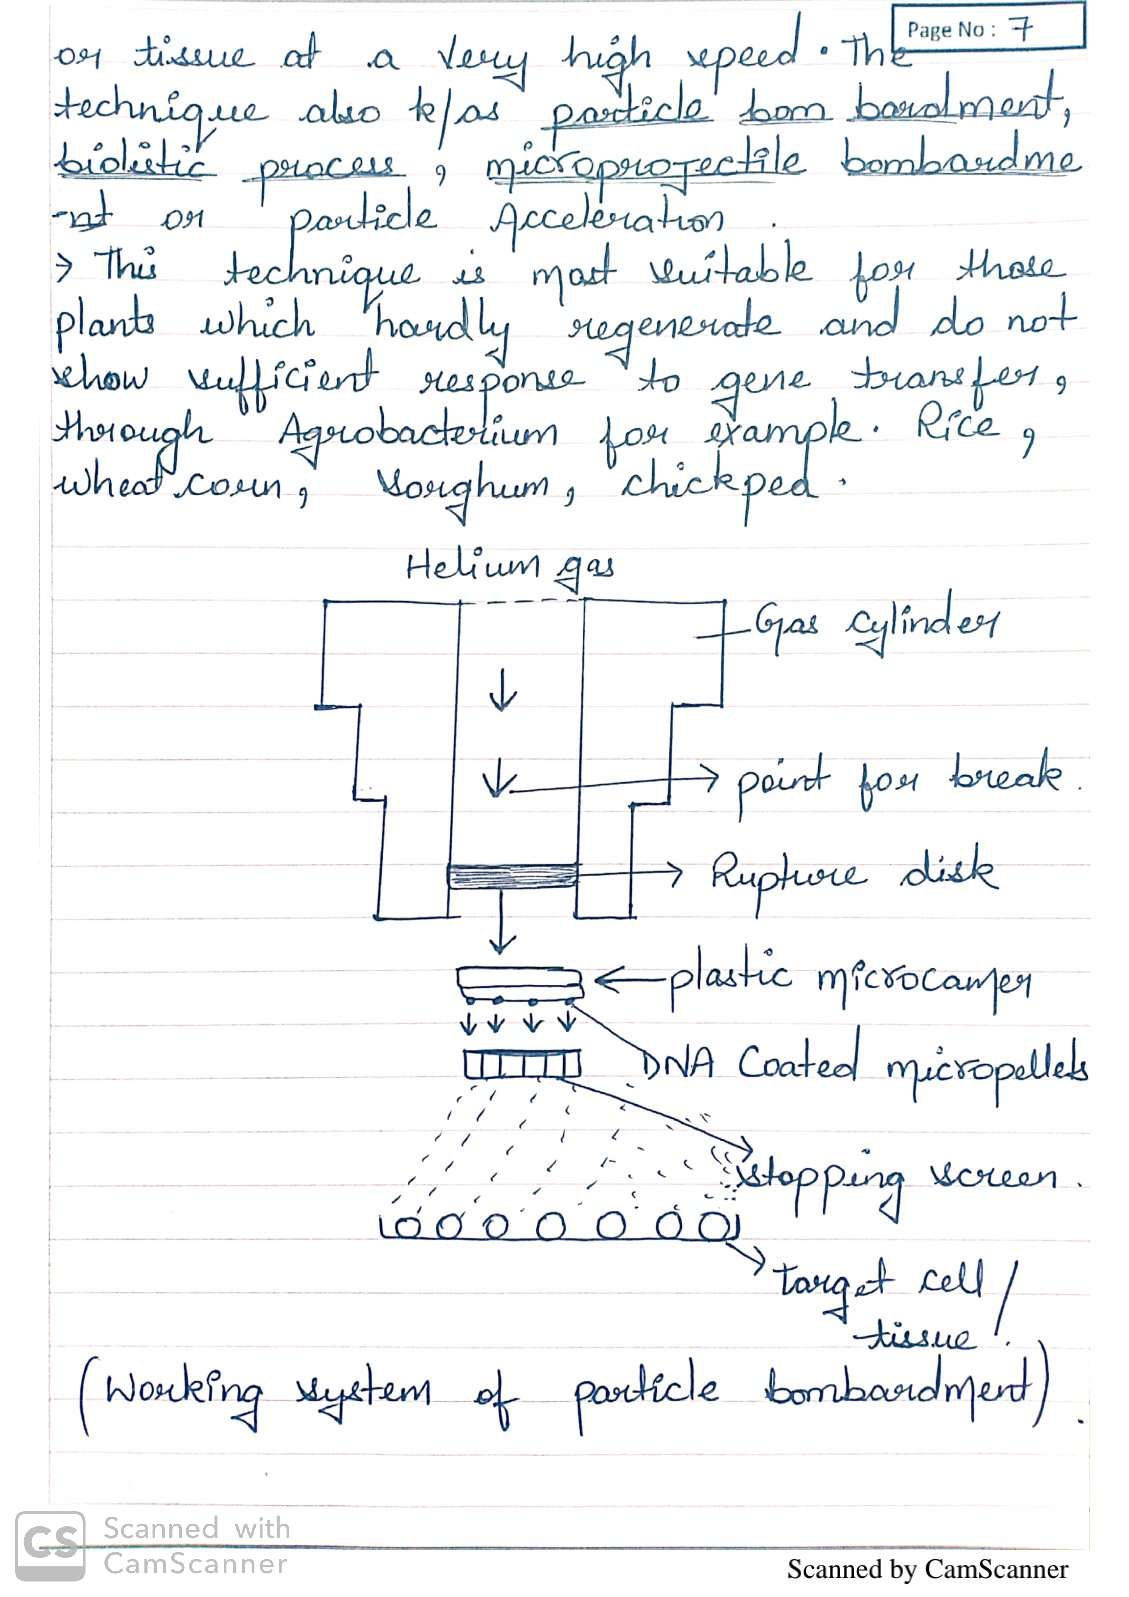 Page No : 7
or tissue at a very high speed. The
technique also k/as particle bom bardment,
biolistic process, microprojectile bombardme
-nt or particle Acceleration.
→ This technique is most suitable for those
plants which hardly regenerate and do not
show sufficient response to gene transfer,
through Agrobacterium for example. Rice,
wheat corn, sorghum, chickped.
Helium gas
Gas cylinder
point for break.
Rupture disk
plastic microcarrier
DNA Coated micropellets
stopping screen.
target cell/
tissue.
(Working system of particle bombardment).
CS
Scanned with
CamScanner
Scanned by CamScanner